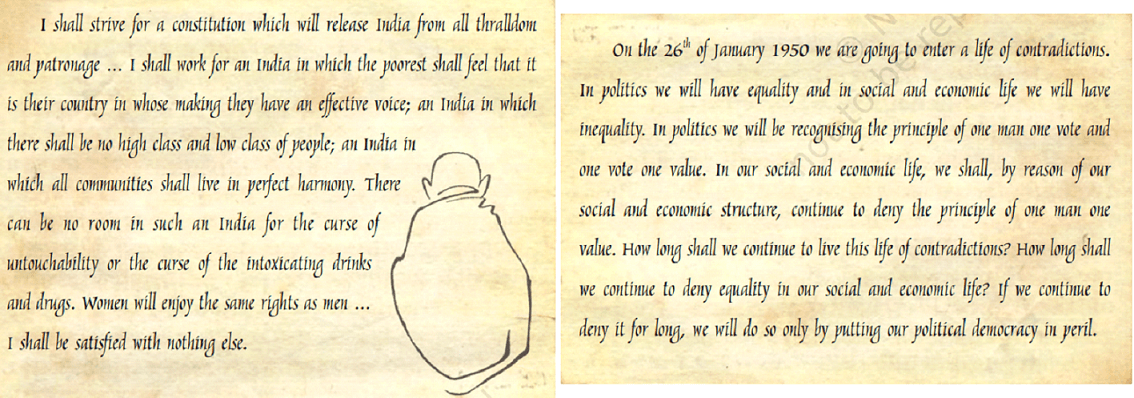 I shall strive for a constitution which will release India from all thralldom
and patronage ... I shall work for an India in which the poorest shall feel that it
is their country in whose making they have an effective voice; an India in which
there shall be no high class and low class of people; an India in
which all communities shall live in perfect harmony. There
can be no room in such an India for the curse of
untouchability or the curse of the intoxicating drinks
and drugs. Women will enjoy the same rights as men ...
I shall be satisfied with nothing else.
On the 26th of January 1950 we are going to enter a life of contradictions.
In politics we will have equality and in social and economic life we will have
inequality. In politics we will be recognising the principle of one man one vote and
one vote one value. In our social and economic life, we shall, by reason of our
social and economic structure, continue to deny the principle of one man one
value. How long shall we continue to live this life of contradictions? How long shall
we continue to deny equality in our social and economic life? If we continue to
deny it for long, we will do so only by putting our political democracy in peril.